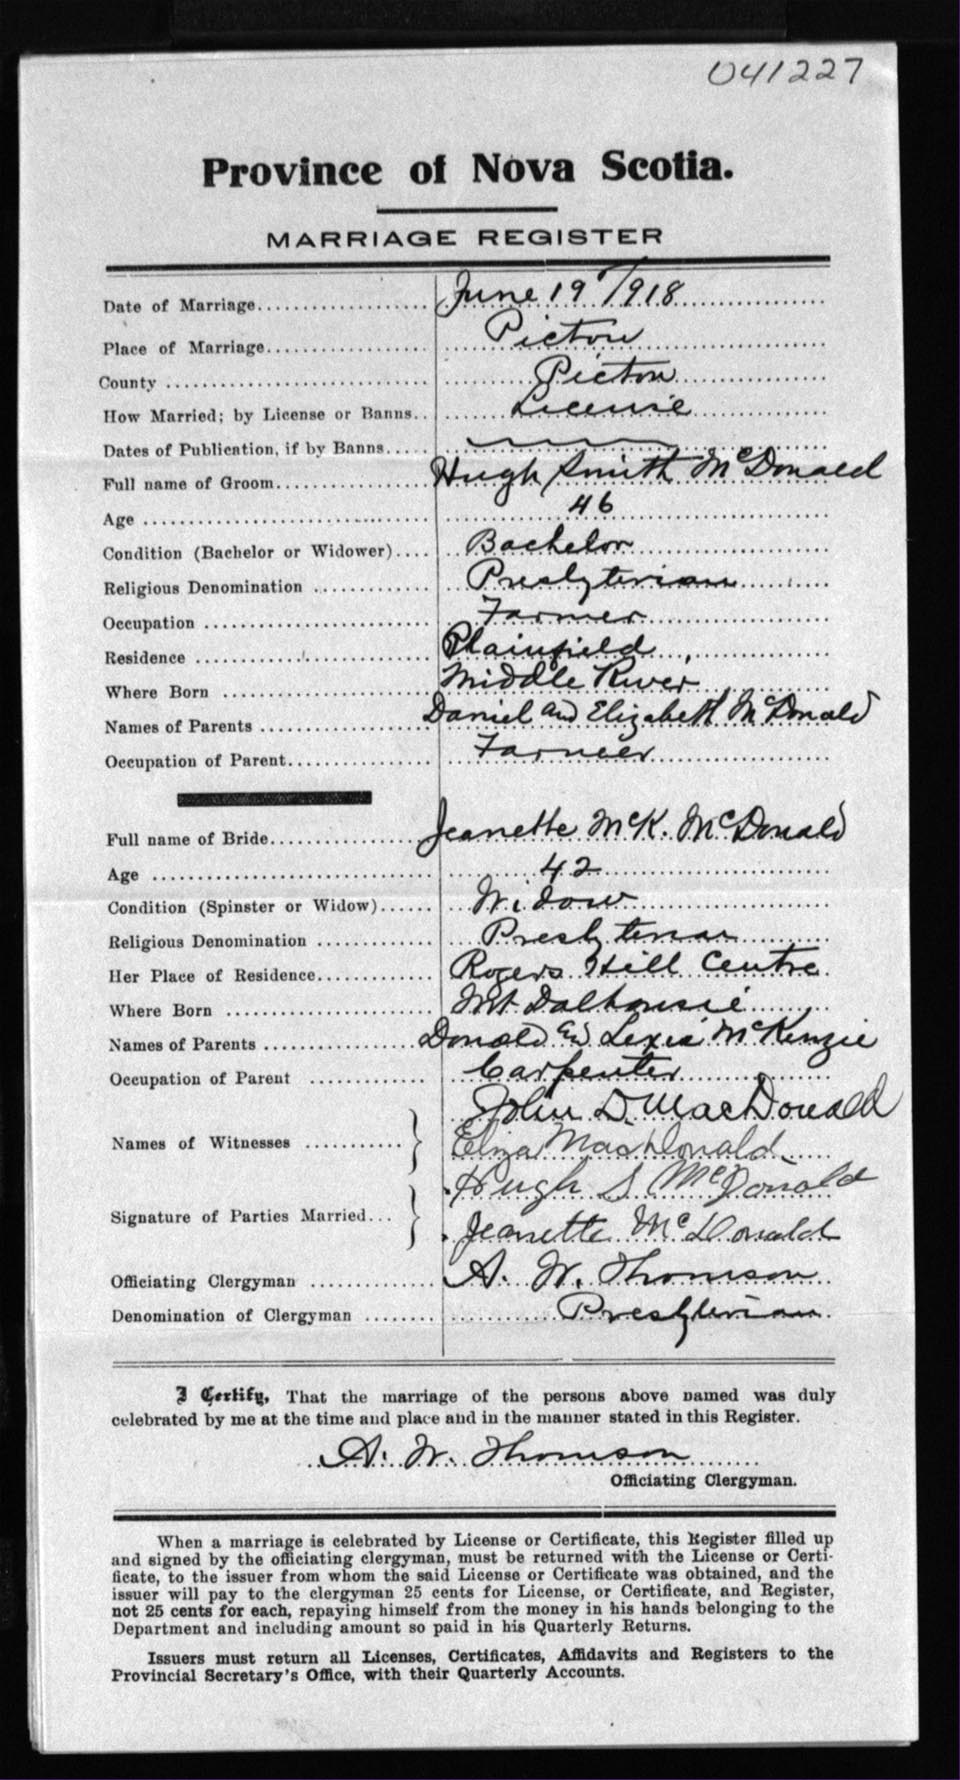 041227
Province of Nova Scotia.
MARRIAGE REGISTER
Date of Marriage.................... June 19 1918
Place of Marriage.................. Pictou
County .............................. Pictou
How Married; by License or Banns.. License
Dates of Publication, if by Banns.....
Full name of Groom.................. Hugh Smith McDonald
Age ................................ 46
Condition (Bachelor or Widower).... Bachelor
Religious Denomination ............. Presbyterian
Occupation ......................... Farmer
Residence .......................... Plainfield
Where Born ......................... Middle River
Names of Parents ................... Daniel and Elizabeth McDonald
Occupation of Parent................ Farmer
Full name of Bride.................. Jeanette McK. McDonald
Age ................................ 42
Condition (Spinster or Widow)...... Widow
Religious Denomination ............. Presbyterian
Her Place of Residence.............. Rogers Hill Centre
Where Born ......................... Mt Dalhousie
Names of Parents ................... Donald and Lexie McKenzie
Occupation of Parent ............... Carpenter
John D. MacDonald
Names of Witnesses ........... } Eliza MacDonald
Hugh S McDonald
Signature of Parties Married... } Jeanette McDonald
Officiating Clergyman .............. A. W. Thomson
Denomination of Clergyman ........ Presbyterian
I Certify, That the marriage of the persons above named was duly
celebrated by me at the time and place and in the manner stated in this Register.
A. W. Thomson
Officiating Clergyman.
When a marriage is celebrated by License or Certificate, this Register filled up
and signed by the officiating clergyman, must be returned with the License or Certi-
ficate, to the issuer from whom the said License or Certificate was obtained, and the
issuer will pay to the clergyman 25 cents for License, or Certificate, and Register,
not 25 cents for each, repaying himself from the money in his hands belonging to the
Department and including amount so paid in his Quarterly Returns.
Issuers must return all Licenses, Certificates, Affidavits and Registers to the
Provincial Secretary's Office, with their Quarterly Accounts.